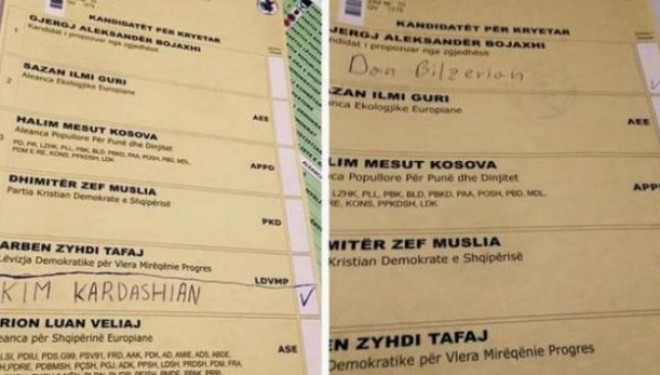 KANDIDATËT PËR KRYETAR
1
GJERGJ ALEKSANDËR BOJAXHI
Kandidat i propozuar nga zgjedhësit
2
SAZAN ILMI GURI
Aleanca Ekologjike Europiane
AEE
3
HALIM MESUT KOSOVA
Aleanca Popullore Për Punë dhe Dinjitet
PD, PR, LZHK, PLL, PBK, BLD, PBKD, PAA, POSH, PBD, MDL,
PDM E RE, KONS, PPKDSH, LDK
APPD
DHIMITËR ZEF MUSLIA
Partia Kristian Demokrate e Shqipërisë
PKD
ARBEN ZYHDI TAFAJ
Lëvizja Demokratike për Vlera Mirëqënie Progres
LDVMP
KIM KARDASHIAN
RION LUAN VELIAJ
eanca për Shqipërinë Europiane
LSI, PDIU, PDS, G99, PSV91, FRD, AAK, PDK, AD, AME, ADS, ABDE,
ASE
KANDIDATËT PËR KRYETAR
JERGJ ALEKSANDËR BOJAXHI
ndidat i propozuar nga zgjedhësit
Dan Bilzerian
ZAN ILMI GURI
nca Ekologjike Europiane
AEE
LIM MESUT KOSOVA
ca Popullore Për Punë dhe Dinjitet
LZHK, PLL, PBK, BLD, PBKD, PAA, POSH, PBD, MDL,
RE, KONS, PPKDSH, LDK
APP
MITËR ZEF MUSLIA
Kristian Demokrate e Shqipërisë
EN ZYHDI TAFAJ
Demokratike për Vlera Mirëqënie Progres